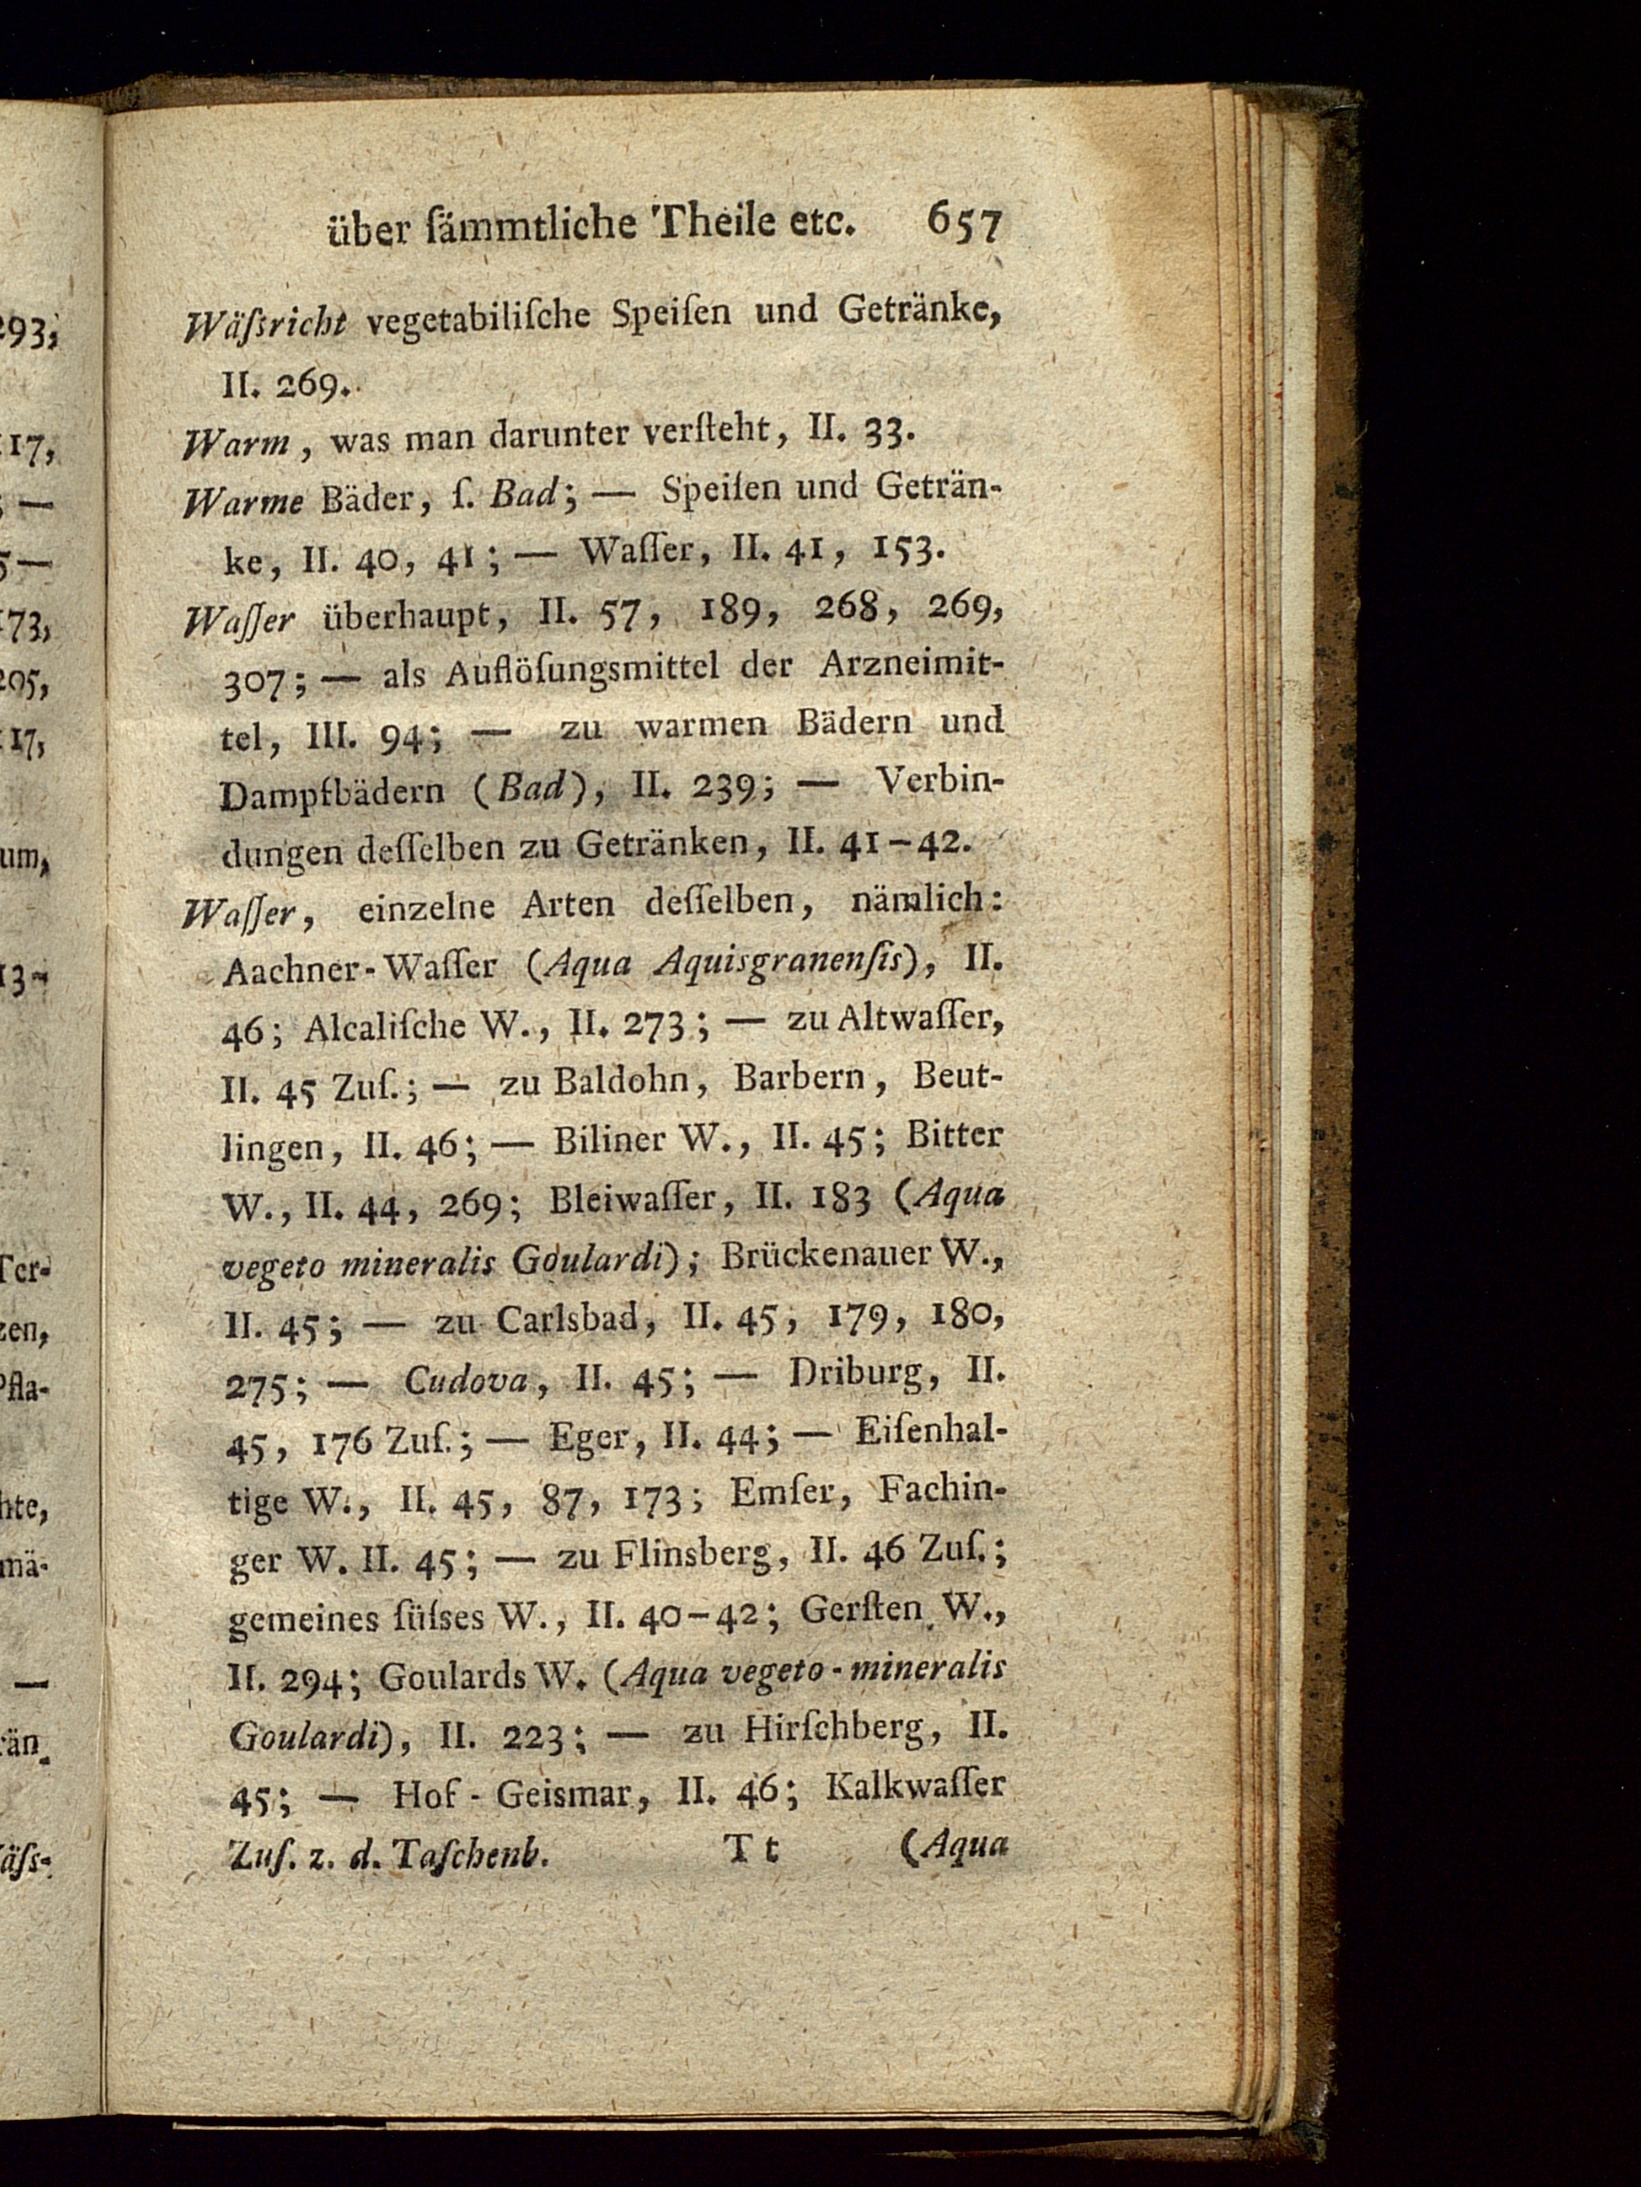 über ſämmtliche Theile etc. 657
Wäſsricht vegetabiliſche Speiſen und Getränke,
II. 269.
Warm, was man darunter verſteht, II. 33.
Warme Bäder, ſ. Bad; — Speiſen und Geträn-
ke, II. 40, 41; — Waſſer, II. 41, 153.
Waſſer überhaupt, II. 57, 189, 268, 269,
307; — als Auflöſungsmittel der Arzneimit-
tel, III. 94; — zu warmen Bädern und
Dampfbädern (Bad), II. 239; — Verbin-
dungen deſſelben zu Getränken, II. 41-42.
Waſſer, einzelne Arten deſſelben, nämlich:
Aachner-Waſſer (Aqua Aquisgranenſis), II.
46; Alcaliſche W., II. 273; — zu Altwaſſer,
II. 45 Zuſ.; — zu Baldohn, Barbern, Beut-
lingen, II. 46; — Biliner W., II. 45; Bitter
W., II. 44, 269; Bleiwaſſer, II. 183 (Aqua
vegeto mineralis Goulardi); Brückenauer W.,
II. 45; — zu Carlsbad, II. 45, 179, 180,
275; — Cudova, II. 45; — Driburg, II.
45, 176 Zuſ.; — Eger, II. 44; — Eiſenhal-
tige W., II. 45, 87, 173; Emſer, Fachin-
ger W. II. 45; — zu Flinsberg, II. 46 Zuſ.;
gemeines ſüſses W., II. 40-42; Gerſten W.,
II. 294; Goulards W. (Aqua vegeto-mineralis
Goulardi), II. 223; — zu Hirſchberg, II.
45; — Hof-Geismar, II. 46; Kalkwaſſer
Zuſ. z. d. Taſchenb. Tt (Aqua